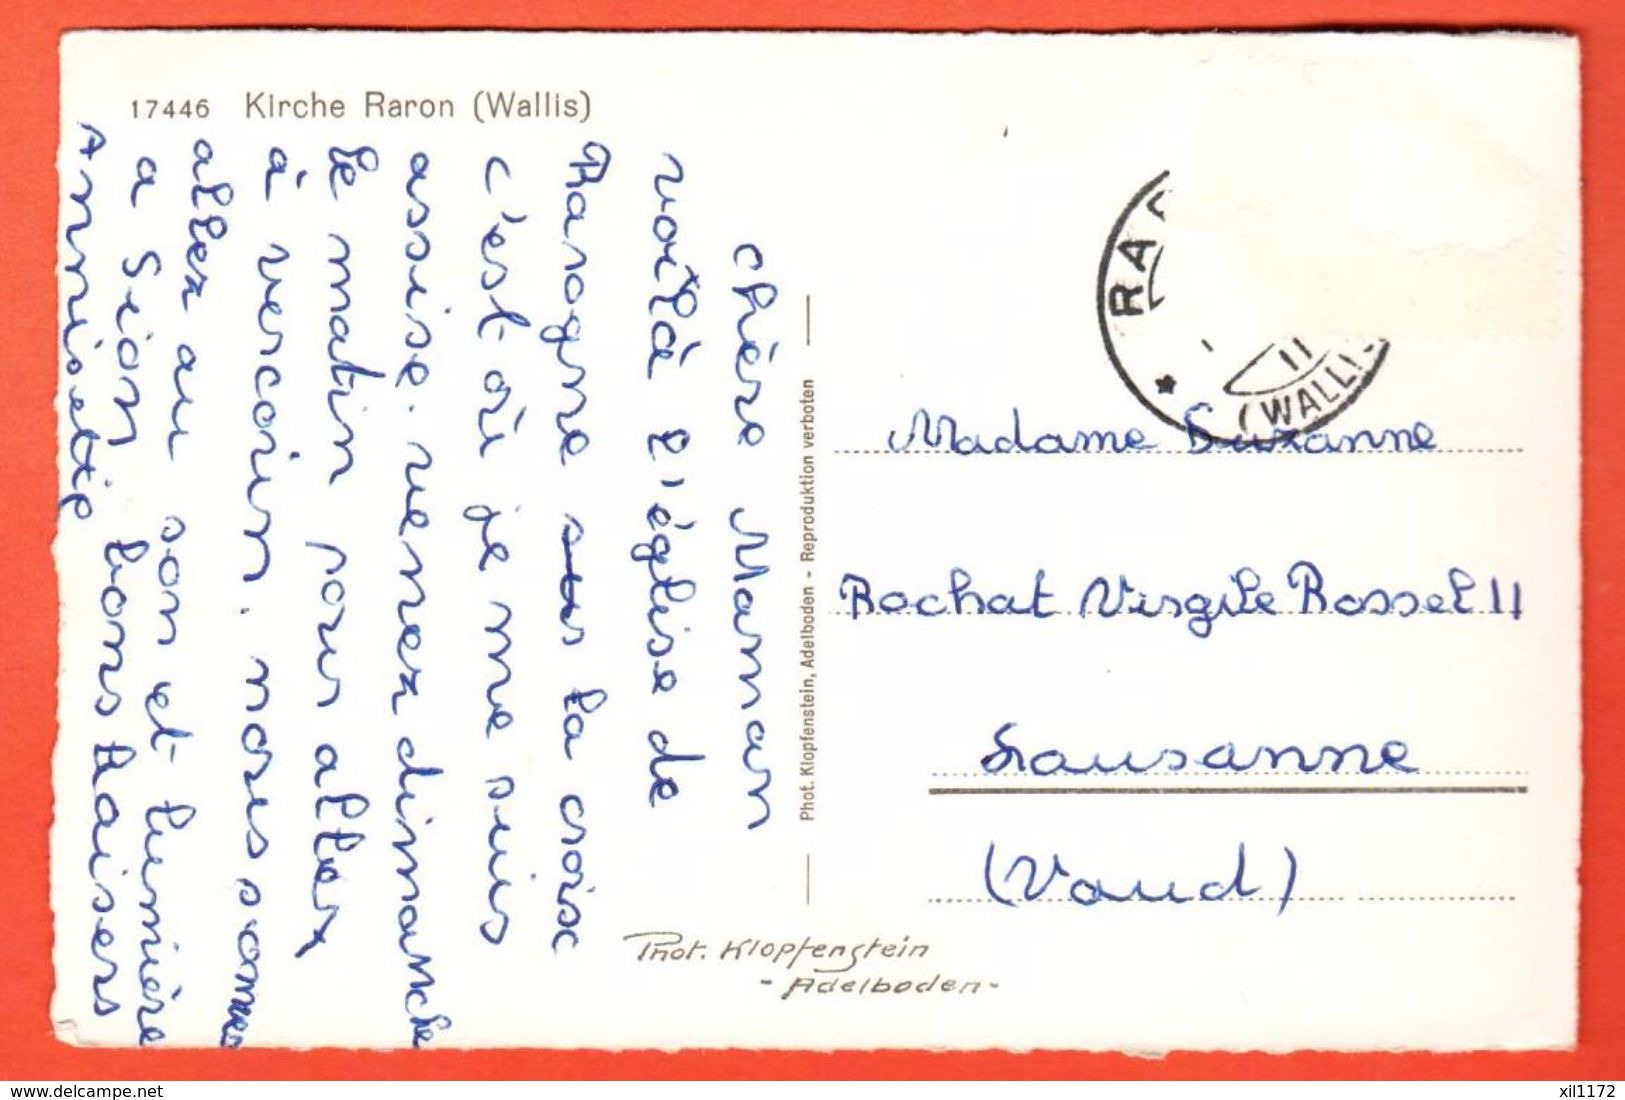 17446 Kirche Raron (Wallis)
chère Maman
voilà l'église de
Rarogne sus la croix
c'est où je me suis
assise. venez dimanche
le matin pour aller
à vercorin. nous sommes
allez au son et lumière
a Sion bons baisers
Anniset
Phot. Klopfenstein, Adelboden - Reproduktion verboten
Phot. Klopfenstein
- Adelboden -
(WALLIS
11
Madame Suzanne
Rochat Virgile Rossel 11
Lausanne
(Vaud)
delcampe.net
xil1172